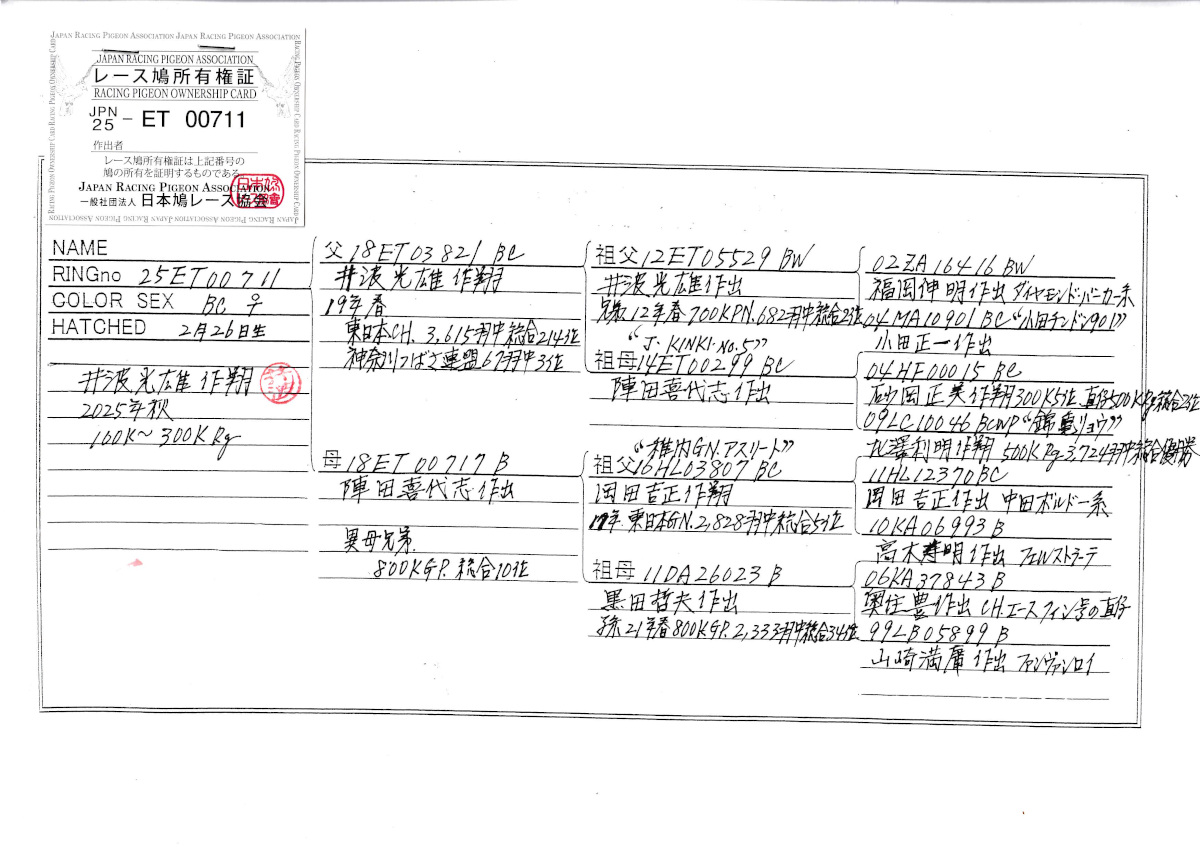 JAPAN RACING PIGEON ASSOCIATION JAPAN RACING PIGEON ASSOCIATION
JAPAN RACING PIGEON ASSOCIATION
レース鳩所有権証
RACING PIGEON OWNERSHIP CARD
JPN
25 - ET 00711
作出者
レース鳩所有権証は上記番号の
鳩の所有を証明するものである
JAPAN RACING PIGEON ASSOCIATION
一般社団法人 日本鳩レース協会
NAME
RINGno 25ET00711
COLOR SEX BC ♀
HATCHED 2月26日生
井波光雄作翔
2025年秋
100K～300KRg
父 18ET03821 BC
井波光雄作翔
19年春
東日本CH. 3,615羽中総合214位
神奈川つばさ連盟67羽中3位
母 18ET00717 B
陣田喜代志作出
異母兄弟.
800KGP. 総合10位
祖父 12ET05529 BW
井波光雄作出
兄弟12年春700KPN.682羽中総合23位
“J・KINKI・No.5”
祖母 14ET00299 BC
陣田喜代志作出
“稚内GN.アスリート”
祖父 16HL03807 BC
岡田吉正作翔
19年.東日本GN.2,828羽中総合5位
祖母 11DA26023 B
黒田哲夫作出
孫21年春800KGP.2,333羽中総合34位
02ZA16416 BW
福岡伸明作出 ダイヤモンド・バーカー系
04MA10901 BC “小田チンドン901”
小田正一作出
04HF00015 BC
砂岡正美作翔300K5位 直仔500KRg総合2位
09LC10046 BCWP “錦竜リョウ”
丸澤利明作翔 500KRg3,724羽中総合優勝
11HL12370 BC
岡田吉正作出 中田ボルドー系
10KA06993 B
高木寿明作出 フェルストラーテ
06KA37843 B
奥住豊作出 CH.エースフィン号の直仔
99LB05899 B
山崎満廣作出 ファンヴァンロイ